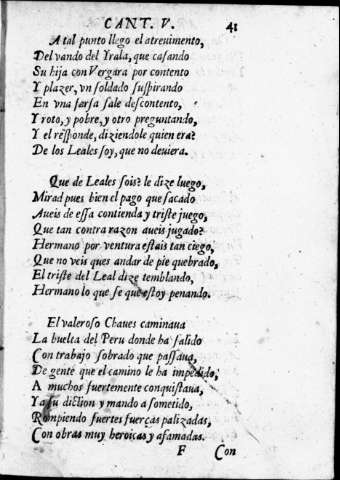 CANT. V. 41
A tal punto llego el atreuimento,
Del vando del Yrala, que casando
Su hija con Vergara por contento
Y plazer, vn soldado suspirando
En vna farsa sale descontento,
Y roto, y pobre, y otro preguntando,
Y el responde, diziendole quien era?
De los Leales soy, que no deuiera.
Que de Leales sois? le dize luego,
Mirad pues bien el pago que sacado
Aueis de essa contienda y triste juego,
Que tan contra razon aueis jugado?
Hermano por ventura estais tan ciego,
Que no veis ques andar de pie quebrado,
El triste del Leal dize temblando,
Hermano lo que se que estoy penando.
El valeroso Chaues caminaua
La buelta del Peru donde ha salido
Con trabajo sobrado que passaua,
De gente que el camino le ha impedido,
A muchos fuertemente conquistaua,
Ya su diction y mando a sometido,
Rompiendo fuertes fuerças palizadas,
Con obras muy heroicas y afamadas.
F Con